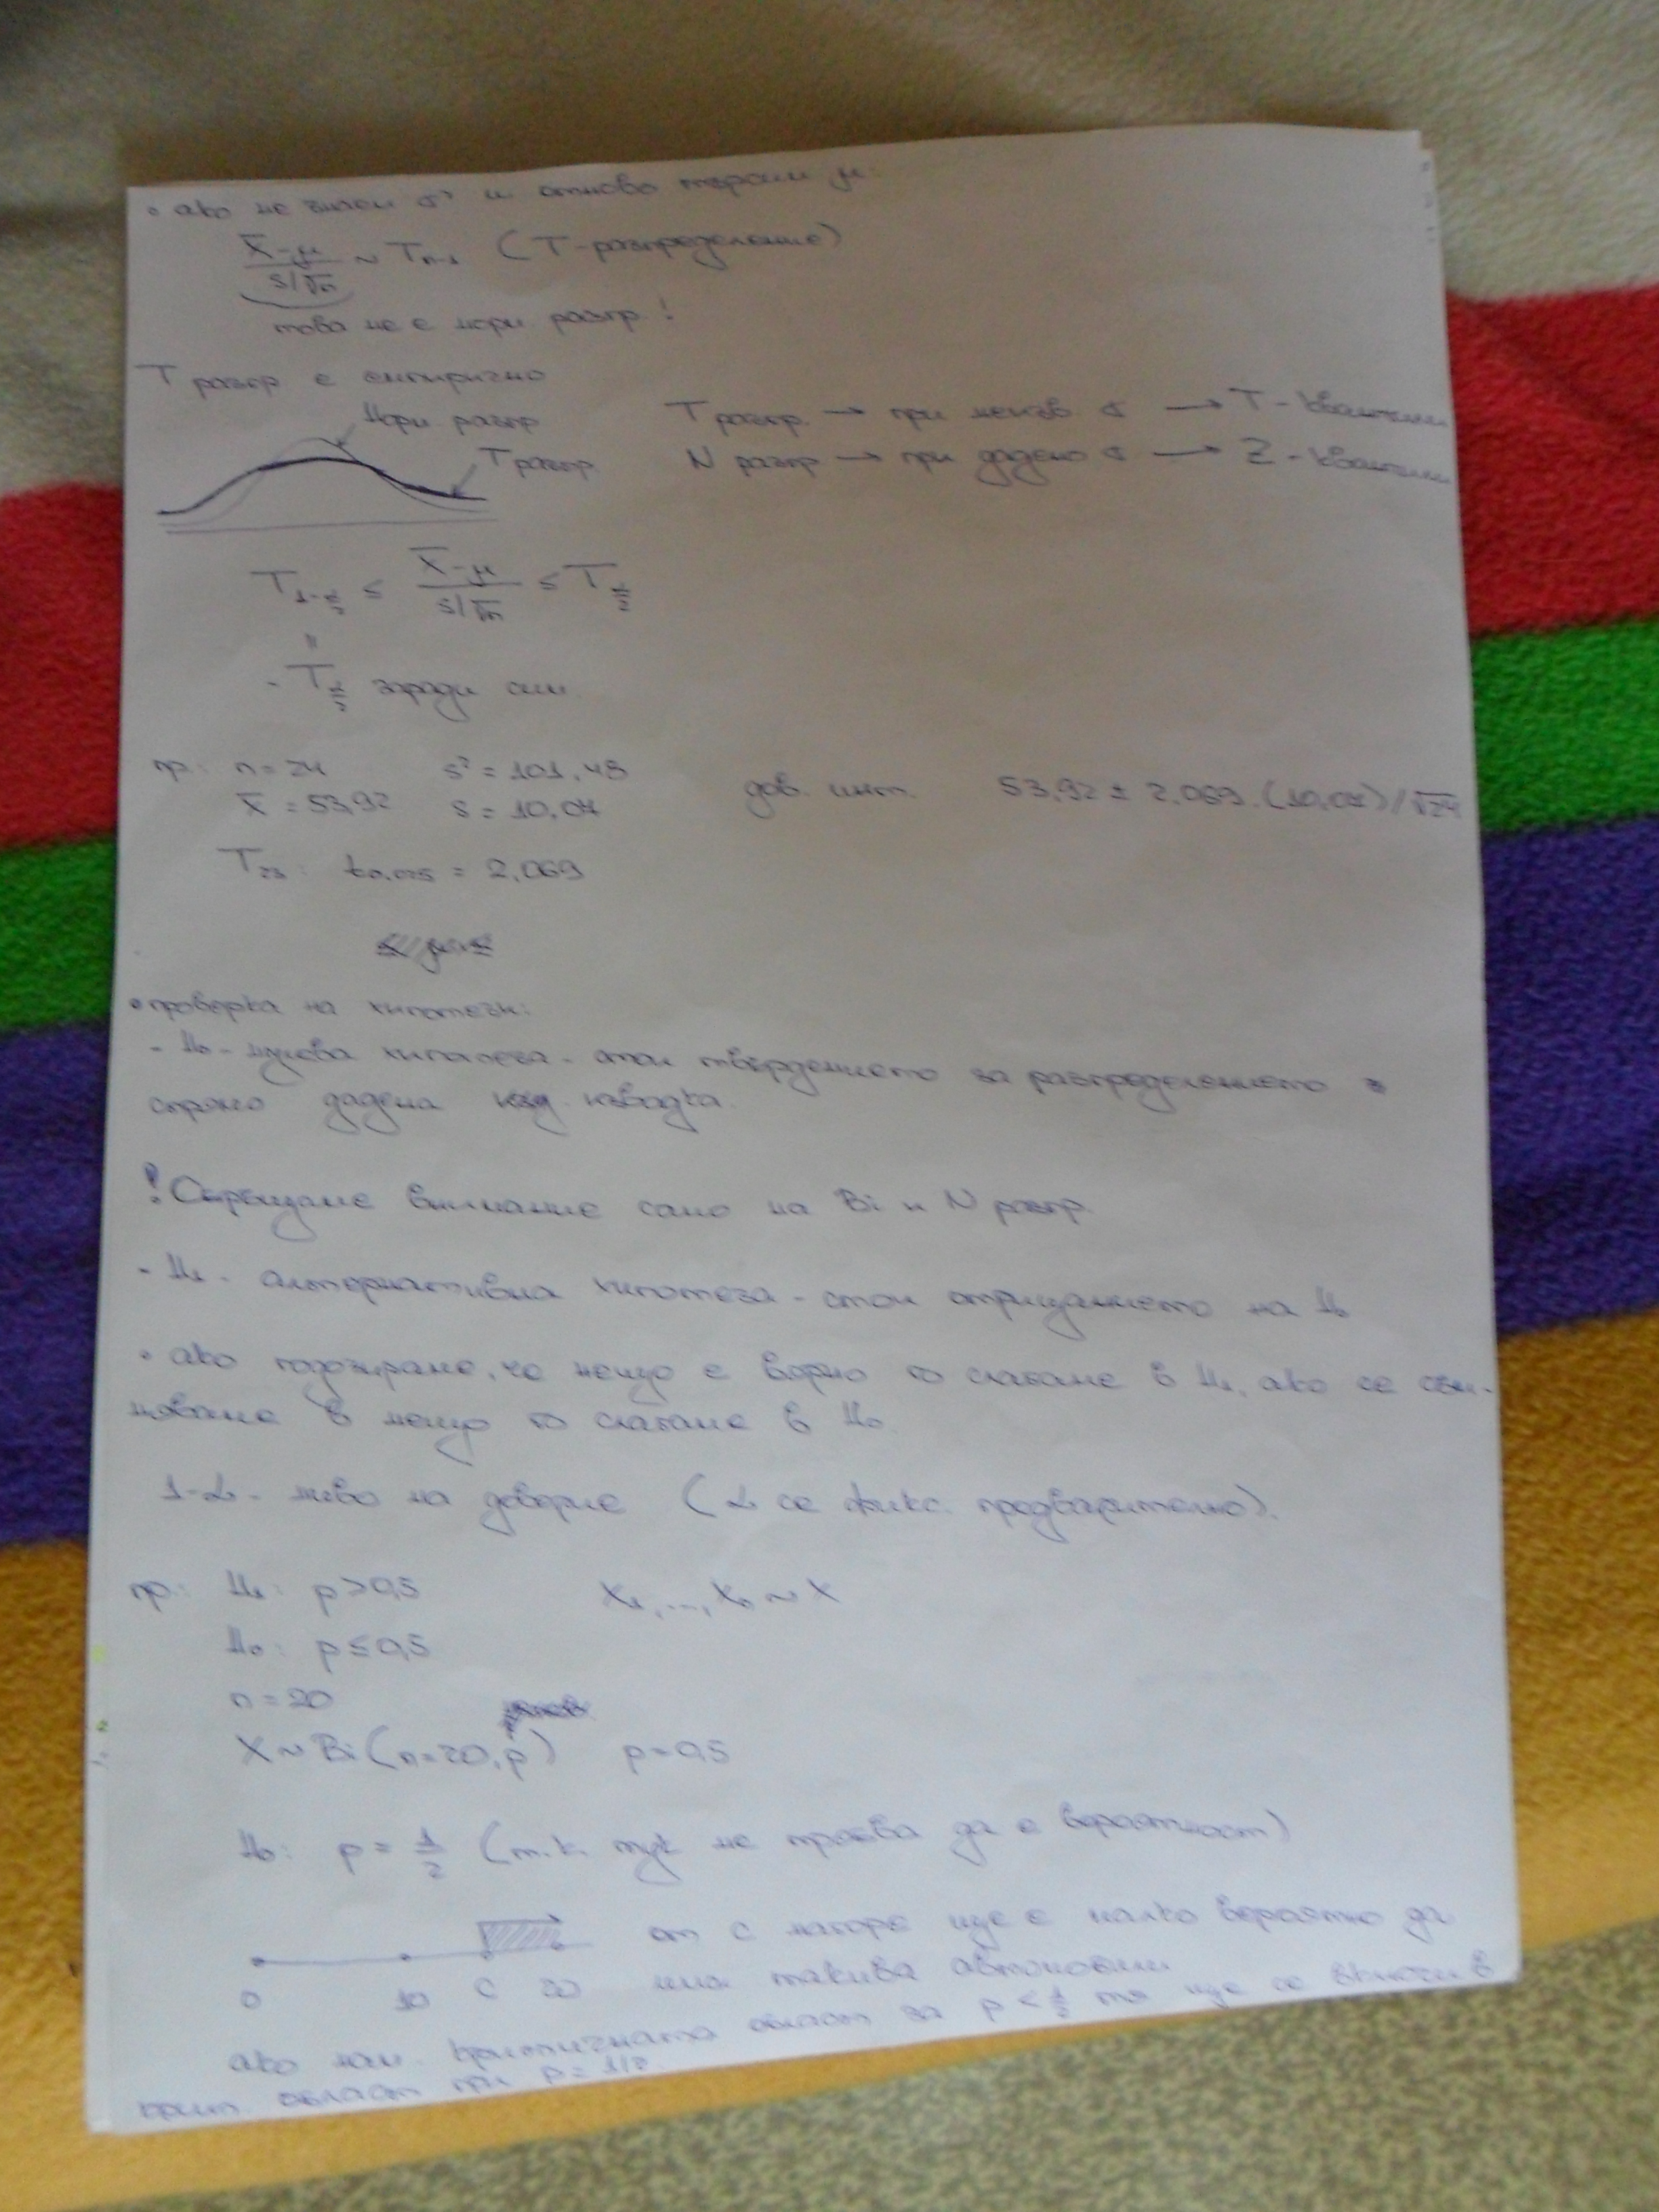 • ако не знаем σ² и отново търсим μ:
X̄-μ / s/√n ~ Tn-1 (T-разпределение)
това не е норм. разпр.!
T разпр е емпирично
Норм. разпр
T разпр
T разпр. → при неизв. σ → T - квантили
N разпр → при дадено σ → Z - квантили
T1-α/2 ≤ X̄-μ / s/√n ≤ Tα/2
"
- Tα/2 заради сим.
пр.: n = 24 s² = 101,48
X̄ = 53,92 s = 10,07
дов. инт. 53,92 ± 2,069.(10,07)/√24
T23: t0,025 = 2,069
• проверка на хипотези:
- H0 - нулева хипотеза - стои твърдението за разпределението
спрямо дадена извадка.
! Обръщаме внимание само на Bi и N разпр.
- H1 - алтернативна хипотеза - стои отрицанието на H0
• ако подозираме, че нещо е вярно го слагаме в H1, ако се съм-
няваме в нещо го слагаме в H0
1-α - ниво на доверие (α се фикс. предварително).
пр.: H1: p > 0,5 X1, ..., Xn ~ X
H0: p ≤ 0,5
n = 20
X ~ Bi(n=20, p) p = 0,5
H0: p = 1/2 (т.к. тук не трябва да е вероятност)
от c нагоре ще е малко вероятно да
0 10 c 20 има такива автомобили
ако нам. критичната област за p < 1/2 тя ще се включи в
крит. област при p = 1/2